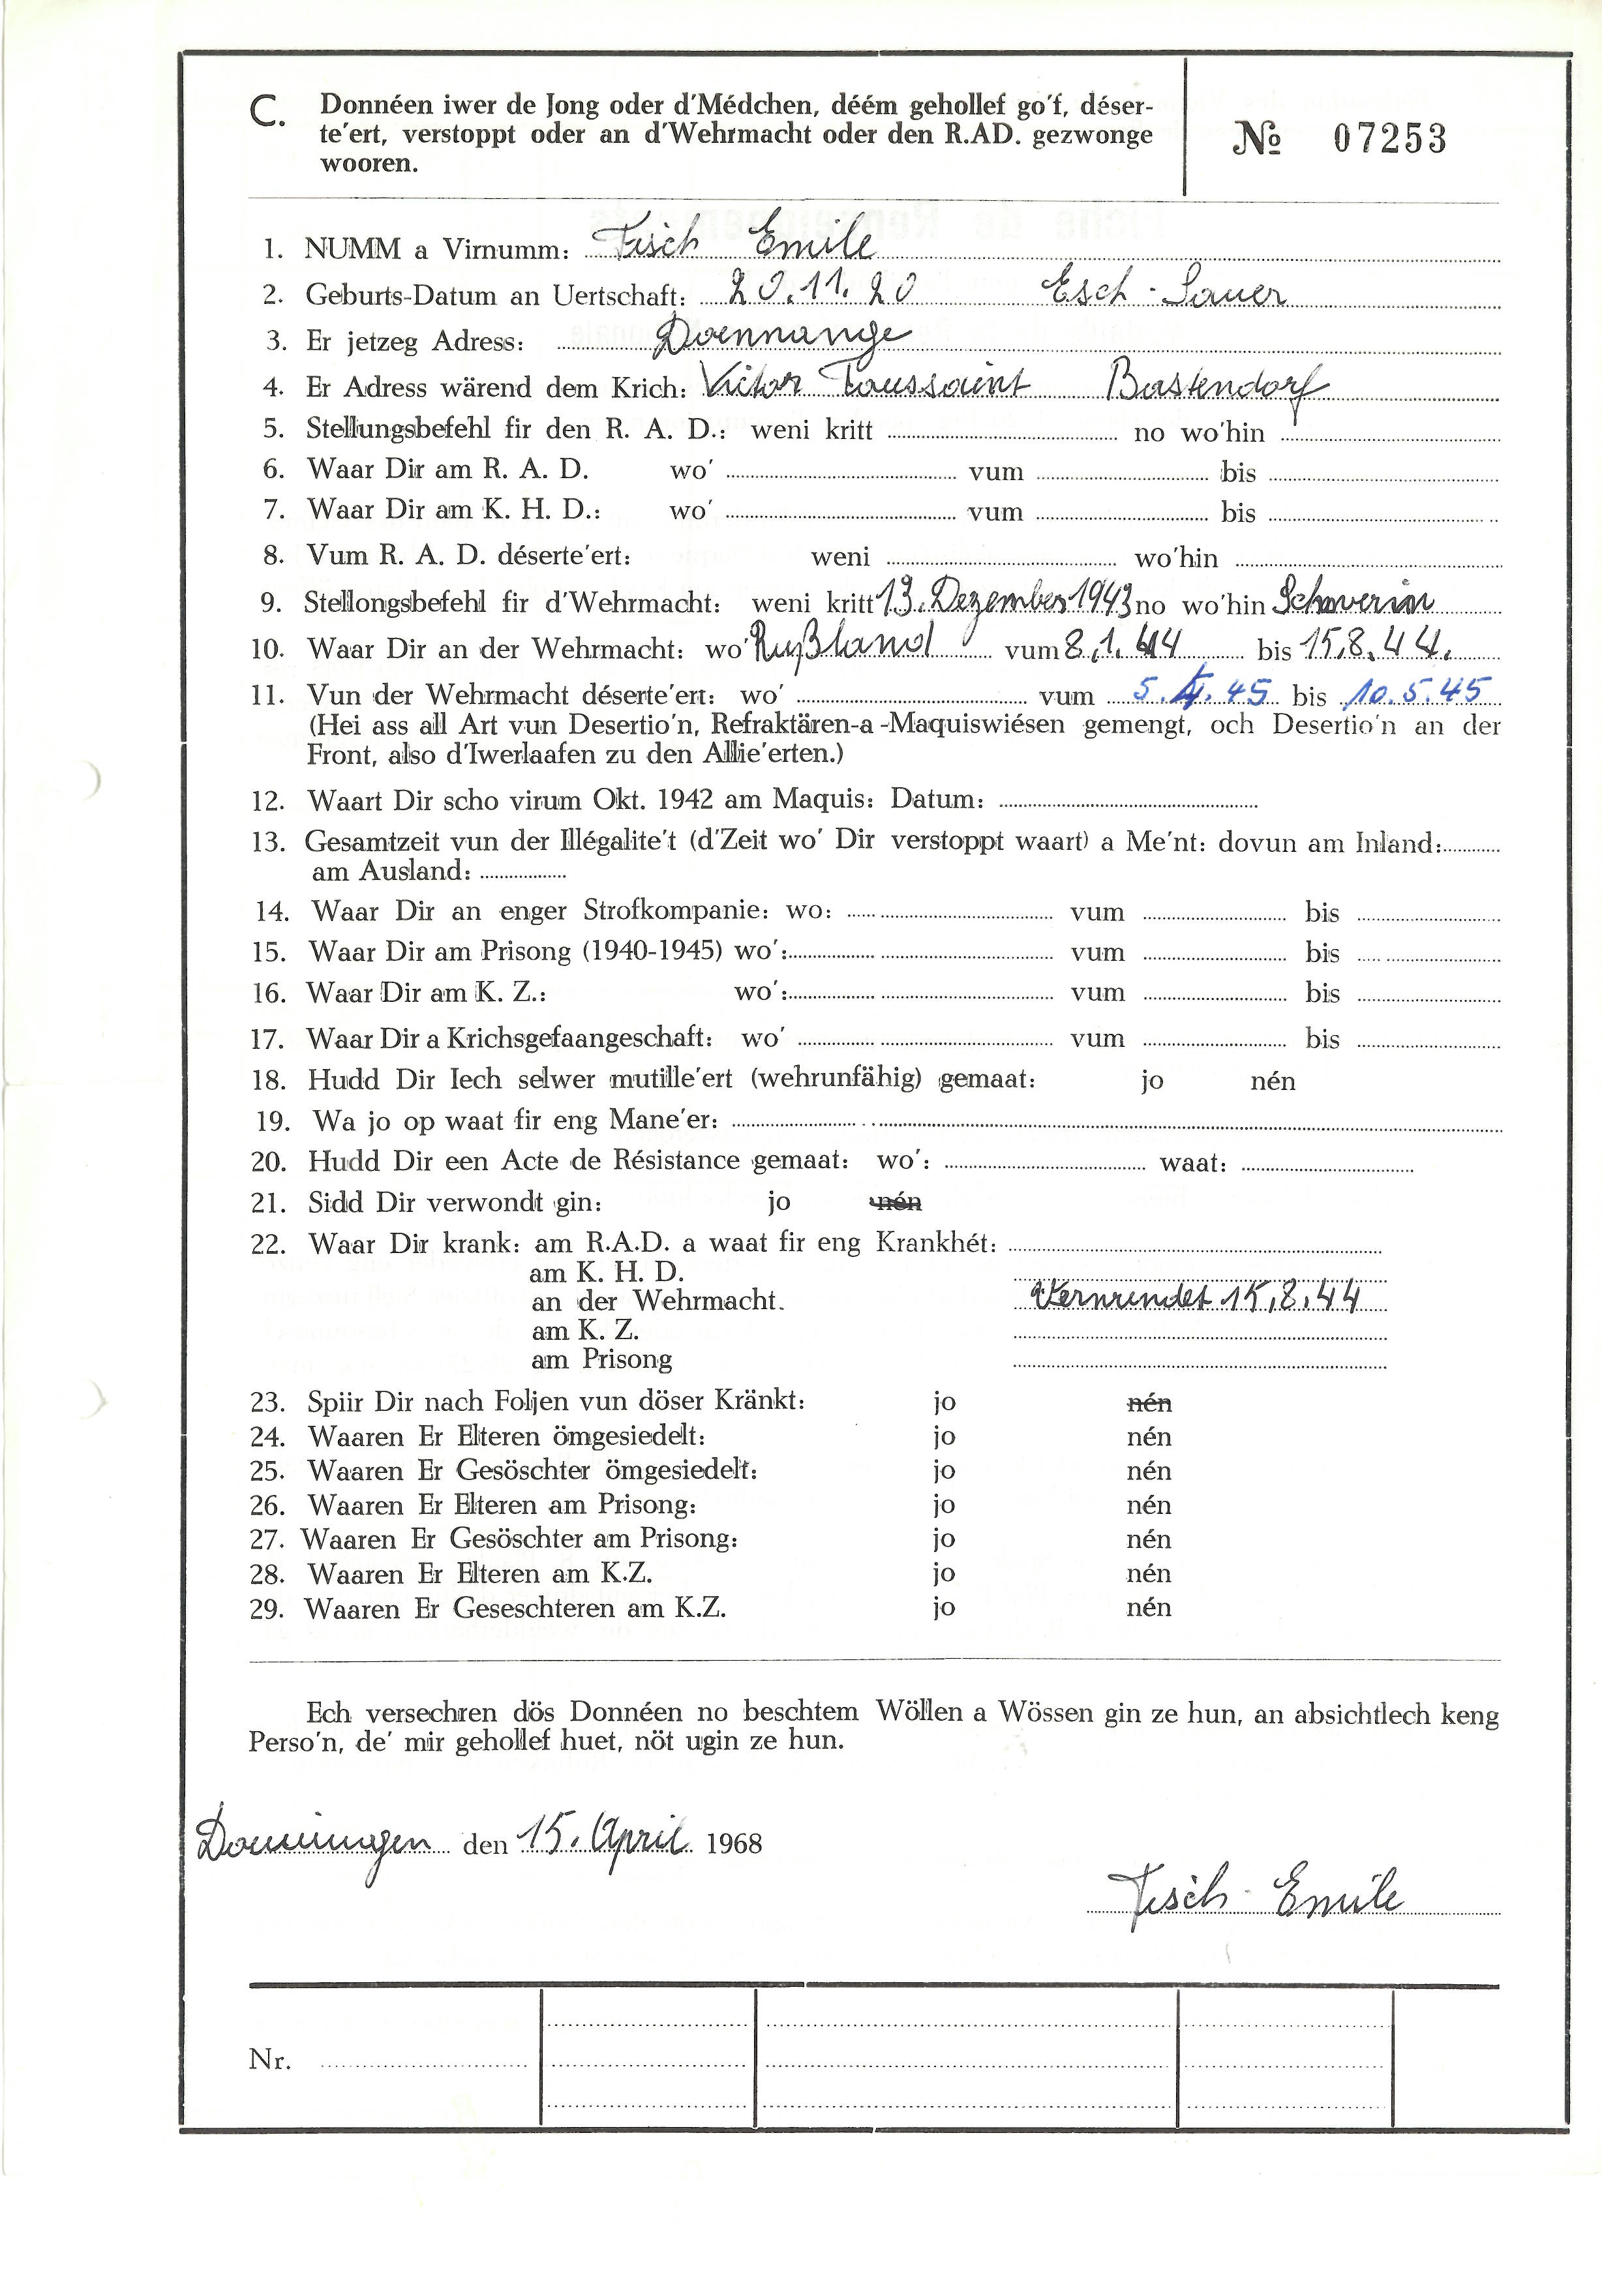 C. Donnéen iwer de Jong oder d'Médchen, déém gehollef go'f, déser-
te'ert, verstoppt oder an d'Wehrmacht oder den R.AD. gezwonge
wooren.
№ 07253
1. NUMM a Virnumm: Fisch Emile
2. Geburts-Datum an Uertschaft: 20.11.20 Esch-Sauer
3. Er jetzeg Adress: Doennange
4. Er Adress wärend dem Krich: Victor Toussaint Bastendorf
5. Stellungsbefehl fir den R. A. D.: weni kritt no wo'hin
6. Waar Dir am R. A. D. wo' vum bis
7. Waar Dir am K. H. D.: wo' vum bis
8. Vum R. A. D. déserte'ert: weni wo'hin
9. Stellongsbefehl fir d'Wehrmacht: weni kritt 13. Dezember 1943 no wo'hin Schwerin
10. Waar Dir an der Wehrmacht: wo' Rußland vum 8.1.44 bis 15.8.44.
11. Vun der Wehrmacht déserte'ert: wo' vum 5. 45 bis 10.5.45
(Hei ass all Art vun Desertio'n, Refraktären-a-Maquiswiésen gemengt, och Desertio'n an der
Front, also d'Iwerlaafen zu den Allie'erten.)
12. Waart Dir scho virum Okt. 1942 am Maquis: Datum:
13. Gesamtzeit vun der Illégalite't (d'Zeit wo' Dir verstoppt waart) a Me'nt: dovun am Inland:
am Ausland:
14. Waar Dir an enger Strofkompanie: wo: vum bis
15. Waar Dir am Prisong (1940-1945) wo': vum bis
16. Waar Dir am K. Z.: wo': vum bis
17. Waar Dir a Krichsgefaangeschaft: wo' vum bis
18. Hudd Dir Iech selwer mutille'ert (wehrunfähig) gemaat: jo nén
19. Wa jo op waat fir eng Mane'er:
20. Hudd Dir een Acte de Résistance gemaat: wo': waat:
21. Sidd Dir verwondt gin: jo nén
22. Waar Dir krank: am R.A.D. a waat fir eng Krankhét:
am K. H. D.
an der Wehrmacht. Verwundet 15.8.44
am K. Z.
am Prisong
23. Spiir Dir nach Foljen vun döser Kränkt: jo nén
24. Waaren Er Elteren ömgesiedelt: jo nén
25. Waaren Er Gesöschter ömgesiedelt: jo nén
26. Waaren Er Elteren am Prisong: jo nén
27. Waaren Er Gesöschter am Prisong: jo nén
28. Waaren Er Elteren am K.Z. jo nén
29. Waaren Er Geseschteren am K.Z. jo nén
Ech versechren dös Donnéen no beschtem Wöllen a Wössen gin ze hun, an absichtlech keng
Perso'n, de' mir gehollef huet, nöt ugin ze hun.
den 15. April 1968
Fisch-Emile
Nr.